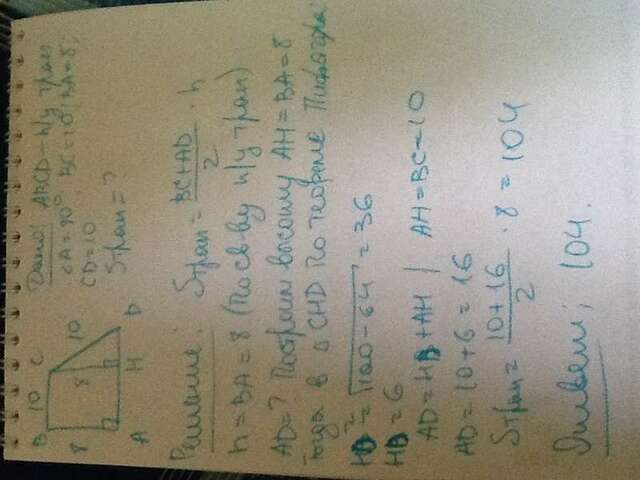 B 10 C
8 8 10
A H D
Дано: ABCD - п/у трап
∠A = 90°, BC = 10, BA = 8;
CD = 10
Sтрап = ?
Решение: Sтрап = BC + AD / 2 · h
h = BA = 8 (По св-ву п/у трап)
AD = ? Построим высоту AH = BA = 8
Тогда в Δ CHD по теореме Пифагора:
HD² = √100 - 64 = 36
HD = 6
AD = HD + AH | AH = BC = 10
AD = 10 + 6 = 16
Sтрап = 10 + 16 / 2 · 8 = 104
Ответ; 104.